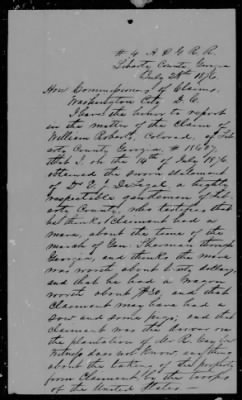 # 4 A & G R R
Liberty County Georgia
July 28th 1876
Hon Commissioners of Claims,
Washington City D. C.
I have the honor to report
in the matter of the Claim of
William Roberts, Colored, of Lib-
erty County Georgia,
that I on the 14th of July 1876
obtained the sworn statement
of Dr a highly
respectable gentleman of Lib-
erty County, who testifies that
he thinks Claimant had a
mare, about the time of the
march of Gen. Sherman through
Georgia, and thinks the mare
was worth about dollars,
and that he had a Wagon
worth about and that
Claimant may have had a
sow and some pigs; and that
Claimant was the driver on
the plantation of Mr
Witness does not know any thing
about the taking of the property
from Claimant by the troops
of the United States —